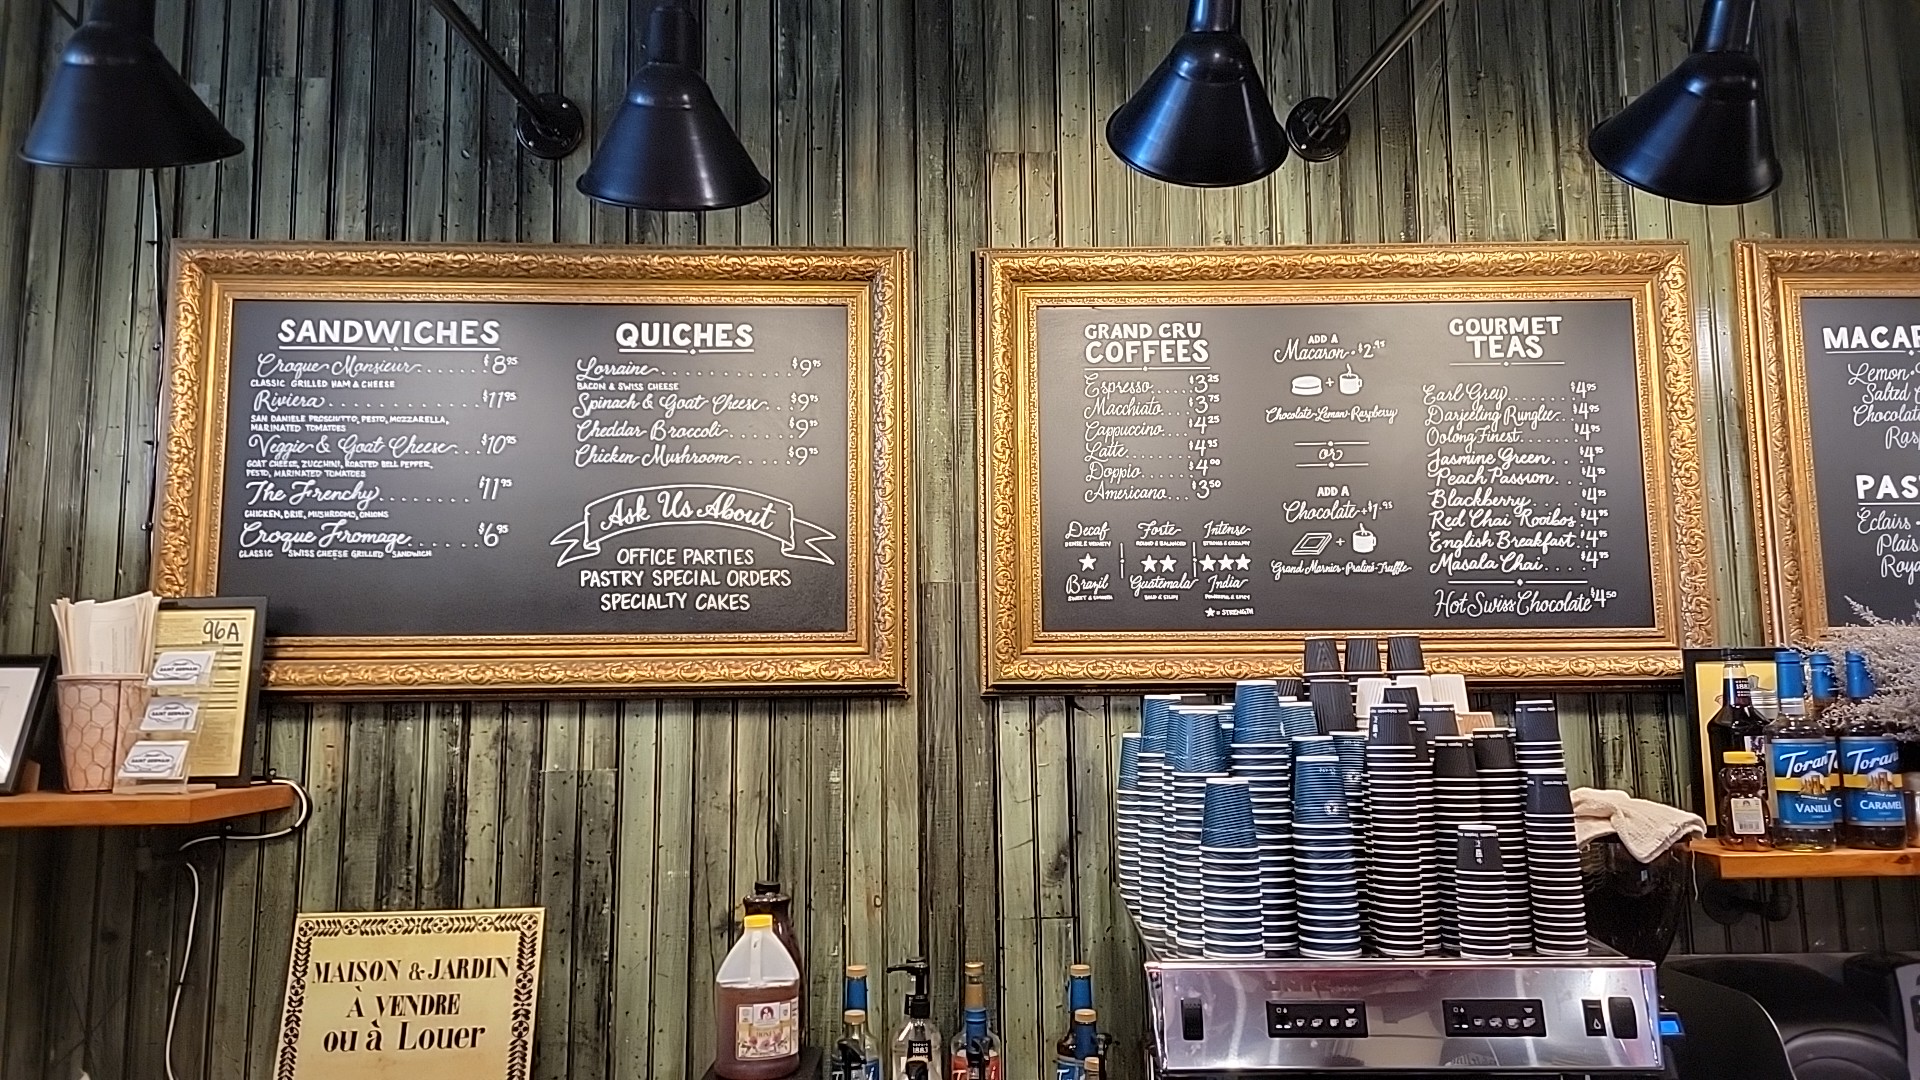 SANDWICHES
Croque Monsieur....... $8.95
CLASSIC GRILLED HAM & CHEESE
Riviera................ $11.95
SAN DANIELE PROSCIUTTO, PESTO, MOZZARELLA,
MARINATED TOMATOES
Veggie & Goat Cheese.. $10.95
GOAT CHEESE, ZUCCHINI, ROASTED BELL PEPPER,
PESTO, MARINATED TOMATOES
The Frenchy........ $11.95
CHICKEN, BRIE, MUSHROOMS, ONIONS
Croque Fromage....... $6.95
CLASSIC SWISS CHEESE GRILLED SANDWICH
QUICHES
Lorraine............ $9.95
BACON & SWISS CHEESE
Spinach & Goat Cheese.. $9.95
Cheddar Broccoli...... $9.95
Chicken Mushroom..... $9.95
Ask Us About
OFFICE PARTIES
PASTRY SPECIAL ORDERS
SPECIALTY CAKES
GRAND CRU
COFFEES
Espresso.... $3.25
Macchiato... $3.75
Cappuccino... $4.25
Latte....... $4.95
Doppio..... $4.00
Americano... $3.50
Decaf
Forte
Intense
Brazil
Guatemala
India
★ = STRENGTH
ADD A
Macaron · $2.95
Chocolate-Lemon-Raspberry
or
ADD A
Chocolate · $1.95
Grand Marnier-Pralini-Truffle
GOURMET
TEAS
Earl Grey....... $4.95
Darjeeling Runglee.. $4.95
Oolong Finest..... $4.95
Jasmine Green... $4.95
Peach Passion... $4.95
Blackberry..... $4.95
Red Chai Rooibos. $4.95
English Breakfast.. $4.95
Masala Chai..... $4.95
Hot Swiss Chocolate $4.50
MACAR
Lemon
Salted
Chocolat
Ras
PAS
Éclairs
Plais
Roya
96A
SAINT GERMAIN
SAINT GERMAIN
SAINT GERMAIN
MAISON & JARDIN
À VENDRE
ou à Louer
1883
Torani
VANILLA
Torani
CARAMEL
1883